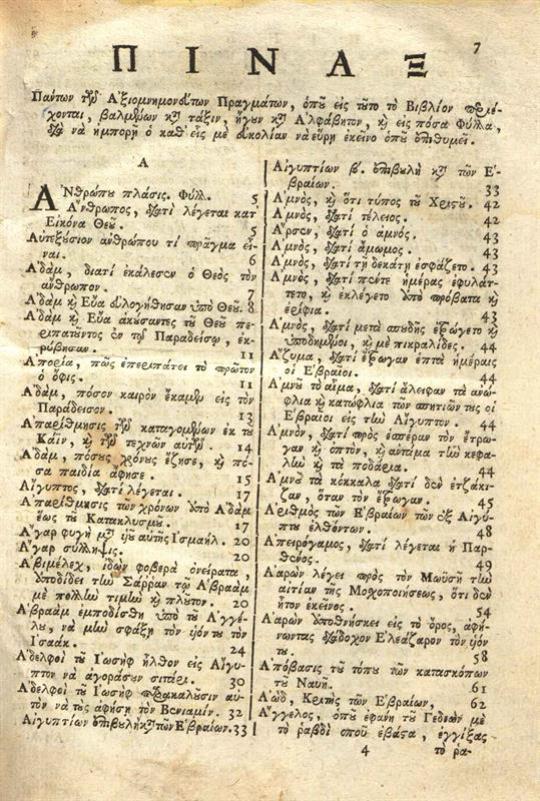 7
ΠΙΝΑΞ
Πάντων τῶν Ἀξιομνημονεύτων Πραγμάτων, ὁποῦ εἰς τοῦτο τὸ Βιβλίον περιέ-
χονται, βαλμένων κατὰ τάξιν, ἤγουν κατὰ Ἀλφάβητον, καὶ εἰς πόσα Φύλλα,
διὰ νὰ ἠμπορῇ ὁ καθ' εἷς μὲ εὐκολίαν νὰ εὕρῃ ἐκεῖνο ὁποῦ ἐπιθυμεῖ.
Α
Ἀνθρώπου πλάσις. Φύλλ. 5
Ἄνθρωπος, διατὶ λέγεται κατ
Εἰκόνα Θεοῦ. 5
Αὐτεξούσιον ἀνθρώπου τί πρᾶγμα εἶ-
ναι. 6
Ἀδὰμ, διατί ἐκάλεσεν ὁ Θεὸς τὸν
ἄνθρωπον. 7
Ἀδὰμ καὶ Εὔα εὐλογήθησαν ὑπὸ Θεοῦ. 8
Ἀδὰμ καὶ Εὔα ἀκούσαντες τοῦ Θεοῦ πε-
ριπατοῦντος ἐν τῷ Παραδείσῳ, ἐκ-
ρύβησαν. 11
Ἀπορία, πῶς ἐπεριπάτει τὸ πρῶτον
ὁ ὄφις. 11
Ἀδὰμ, πόσον καιρὸν ἔκαμεν εἰς τὸν
Παράδεισον. 13
Ἀπαρίθμησις τῶν καταγομένων ἐκ τοῦ
Κάϊν, καὶ τῶν τεχνῶν αὐτῶν. 14
Ἀδὰμ, πόσους χρόνους ἔζησε, καὶ πό-
σα παιδία ἄφησε. 15
Αἴγυπτος, διατὶ λέγεται. 17
Ἀπαρίθμησις τῶν χρόνων ὑπὸ Ἀδὰμ
ἕως τοῦ Κατακλυσμοῦ. 17
Ἄγαρ φυγὴ μετὰ τοῦ υἱοῦ αὐτῆς Ἰσμαήλ. 20
Ἄγαρ σύλληψις. 20
Ἀβιμέλεχ, ἰδὼν φοβερὰ ὀνείρατα,
ἀποδίδει τὴν Σάρραν τῷ Ἀβραὰμ
μὲ πολλὴν τιμὴν καὶ πλοῦτον. 20
Ἀβραὰμ ἐμποδίσθη ὑπὸ τοῦ Ἀγγέ-
λου, νὰ μὴν σφάξῃ τὸν υἱόν του τὸν
Ἰσαάκ. 24
Ἀδελφοὶ τοῦ Ἰωσὴφ ἦλθον εἰς Αἴγυ-
πτον νὰ ἀγοράσουν σιτάρι. 30
Ἀδελφοὶ τοῦ Ἰωσὴφ παρακαλοῦσιν αὐ-
τὸν νὰ τοὺς ἀφήσῃ τὸν Βενιαμίν. 32
Αἰγυπτίων ἐπιβουλὴ κατὰ τῶν Ἑβραίων. 33
Αἰγυπτίων β. ἐπιβουλὴ κατὰ τῶν Ἑ-
βραίων. 33
Ἀμνὸς, καὶ ὅτι τύπος τοῦ Χριστοῦ. 42
Ἀμνὸς, διατὶ τέλειος. 42
Ἄρσεν, διατὶ ὁ ἀμνός. 43
Ἀμνὸς, διατὶ ἄμωμος. 43
Ἀμνὸς, διατὶ τῇ δεκάτῃ ἐσφάζετο. 43
Ἀμνὸς, διατὶ πέντε ἡμέρας ἐφυλάτ-
τετο, καὶ ἐκλέγετο ἀπὸ πρόβατα καὶ
ἐρίφια. 43
Ἀμνὸς, διατὶ μετὰ σπουδῆς ἐτρώγετο καὶ
ὑποδημένοι, καὶ μὲ πικραλίδες. 44
Ἄζυμα, διατὶ ἔτρωγαν ἑπτὰ ἡμέραις
οἱ Ἑβραῖοι. 44
Ἀμνοῦ τὸ αἷμα, διατὶ ἄλειφαν τὰ ἀνώ-
φλια καὶ κατώφλια τῶν σπητιῶν τους οἱ
Ἑβραῖοι εἰς τὴν Αἴγυπτον. 44
Ἀμνὸν, διατὶ πρὸς ἑσπέραν τὸν ἔτρω-
γαν καὶ ὀπτὸν, καὶ ἀντάμα τὴν κεφα-
λὴν καὶ τὰ ποδάρια. 44
Ἀμνοῦ τὰ κόκκαλα διατὶ δὲν ἐτζάκι-
ζαν, ὅταν τὸν ἔτρωγαν. 45
Ἀριθμὸς τῶν Ἑβραίων τῶν ἐξ Αἰγύ-
πτου ἐλθόντων. 48
Ἀπειρόγαμος, διατὶ λέγεται ἡ Παρ-
θένος. 49
Ἀαρὼν λέγει πρὸς τὸν Μωϋσῆ τὴν
αἰτίαν τῆς Μοχοποιήσεως, ὅτι δὲν
ἦτον ἐκεῖνος. 54
Ἀαρὼν ἀποθνήσκει εἰς τὸ ὄρος, ἀφή-
νωντας διάδοχον Ἐλεάζαρον τὸν υἱόν
του. 58
Ἀπόβασις τοῦ τόπου τῶν κατασκόπων
τοῦ Ναυῆ. 61
Ἀὼδ, Κριτὴς τῶν Ἑβραίων, 62
Ἄγγελος, ὁποῦ ἐφάνη τοῦ Γεδεὼν μὲ
τὸ ραβδὶ ὁποῦ ἐβάστα, ἐγγίξας
4 τὸ ρα-